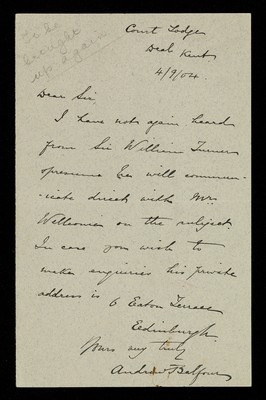 To be
brought
up again
Court Lodge
Deal Kent
4/9/04.
Dear Sir,
I have not again heard
from Sir William Turner
& presume he will commun-
-icate direct with Mrs
Wellcome on the subject.
In case you wish to
make enquiries his private
address is 6 Eaton Terrace
Edinburgh.
Yours very truly
Andrew Balfour